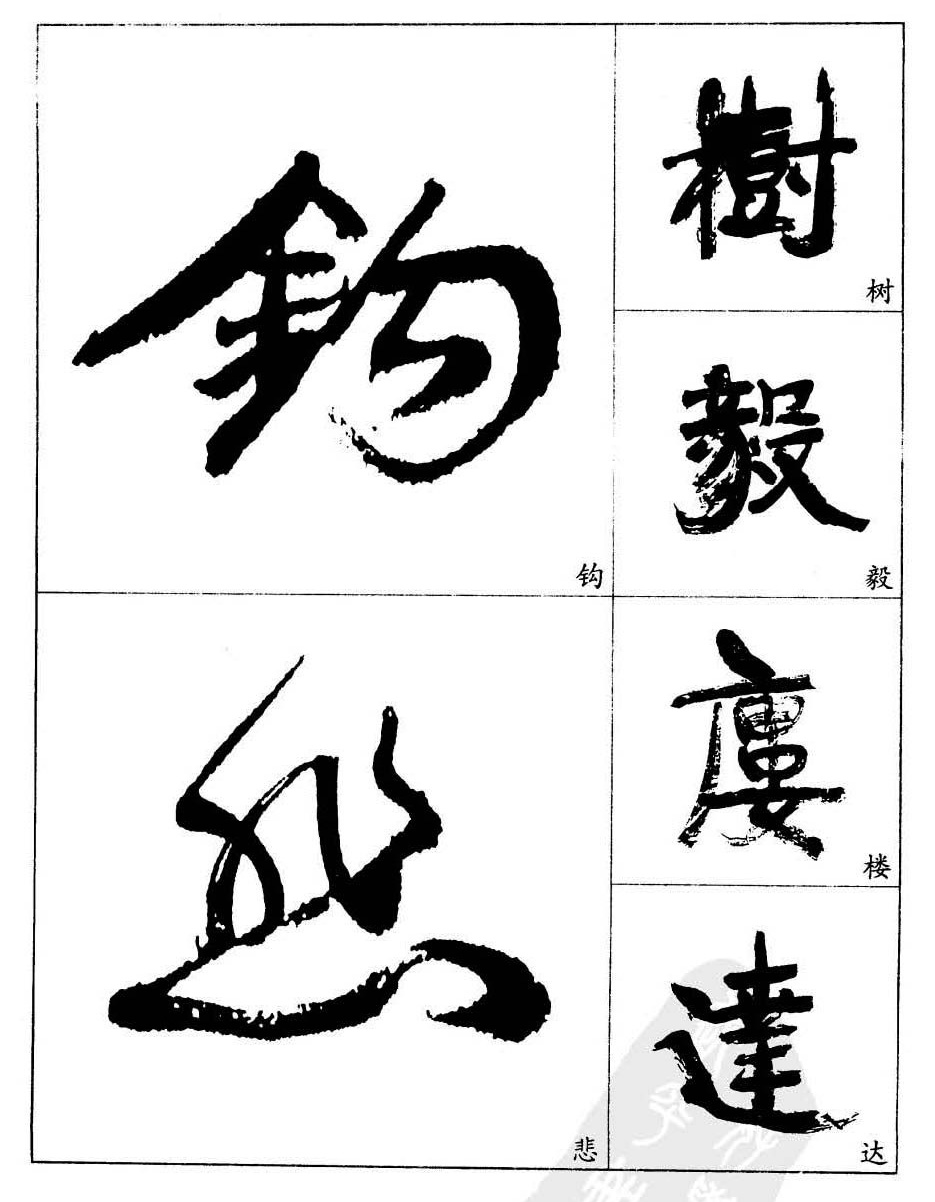 鈎
钩
悲
悲
樹
树
毅
毅
廔
楼
達
达